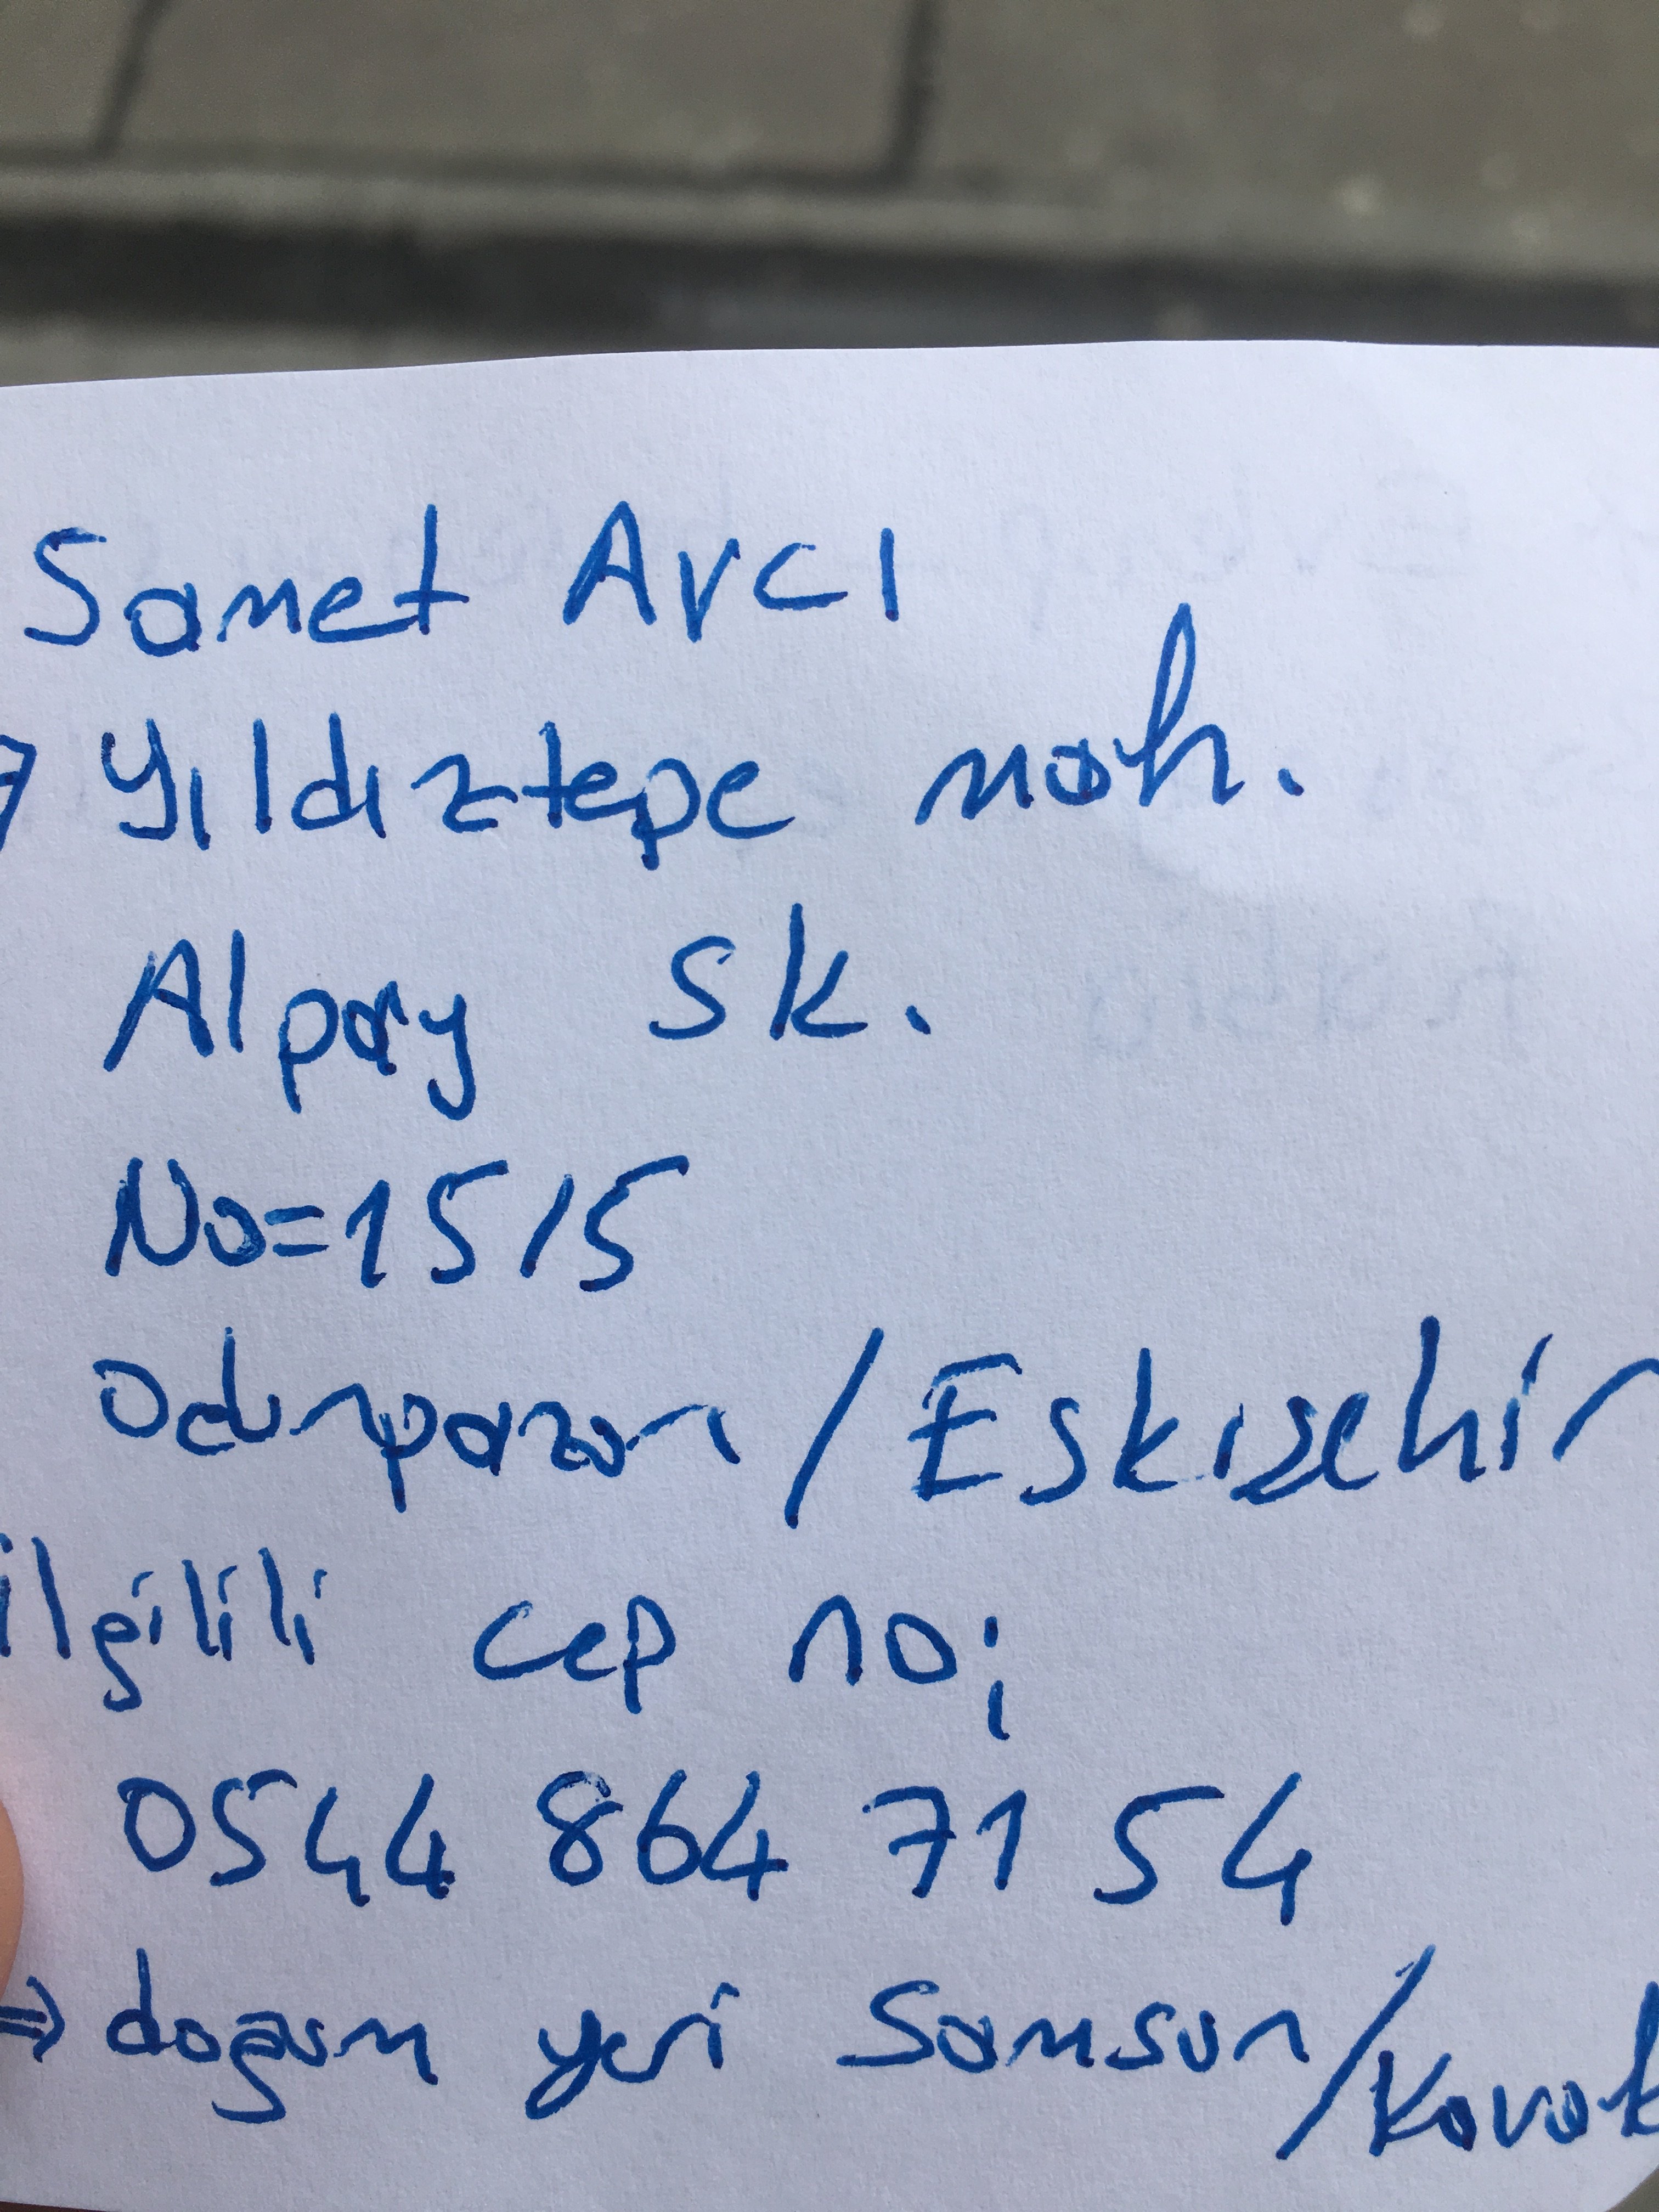 Samet Avcı
⇒ Yıldıztepe mah.
Alpay sk.
No=15/5
Odunpazarı / Eskişehir
ilgilili cep no;
0544 864 71 54
⇒ doğum yeri Samsun/Kavak